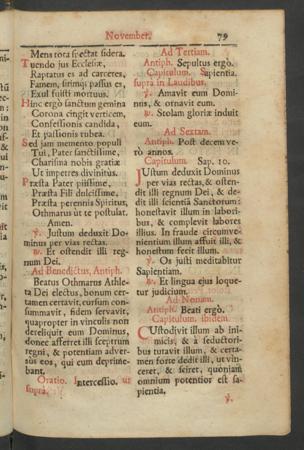 November.
79
Mens tota spectat sidera.
Tuendo jus Ecclesiæ,
Raptatus es ad carceres,
Famem, sitimque passus es,
Exul fuisti mortuus.
Hinc ergò sanctum gemina
Corona cingit verticem,
Confessionis candida,
Et passionis rubea.
Sed jam memento populi
Tui, Pater sanctissime,
Charisma nobis gratiæ
Ut impetres divinitus.
Præsta Pater piissime,
Præsta Fili dulcissime,
Præsta perennis Spiritus,
Othmarus ut te postulat.
Amen.
℣. Justum deduxit Dominus per vias rectas.
℟. Et ostendit illi regnum Dei.
Ad Benedictus, Antiph.
Beatus Othmarus Athleta Dei electus, bonum certamen certavit, cursum consummavit, fidem servavit,
quapropter in vinculis non
dereliquit eum Dominus,
donec afferret illi sceptrum
regni, & potentiam adversùs eos, qui eum deprimebant.
Oratio. Intercessio. ut
suprà.
Ad Tertiam.
Antiph. Sepultus ergò.
Capitulum. Sapientia.
suprà in Laudibus.
℣. Amavit eum Dominus, & ornavit eum.
℟. Stolam gloriæ induit
eum.
Ad Sextam.
Antiph. Post decem verò annos.
Capitulum. Sap. 10.
JUstum deduxit Dominus
per vias rectas, & ostendit illi regnum Dei, & dedit illi scientiâ Sanctorum:
honestavit illum in laboribus, & complevit labores
illius. In fraude circumvenientium illum affuit illi, &
honestum fecit illum.
℣. Os justi meditabitur
Sapientiam.
℟. Et lingua ejus loquetur judicium.
Ad Nonam.
Antiph. Beati ergò.
Capitulum. ibidem.
CUstodivit illum ab inimicis, & à seductoribus tutavit illum, & certamen forte dedit illi, ut vinceret, & sciret, quoniam
omnium potentior est sapientia.
℣.